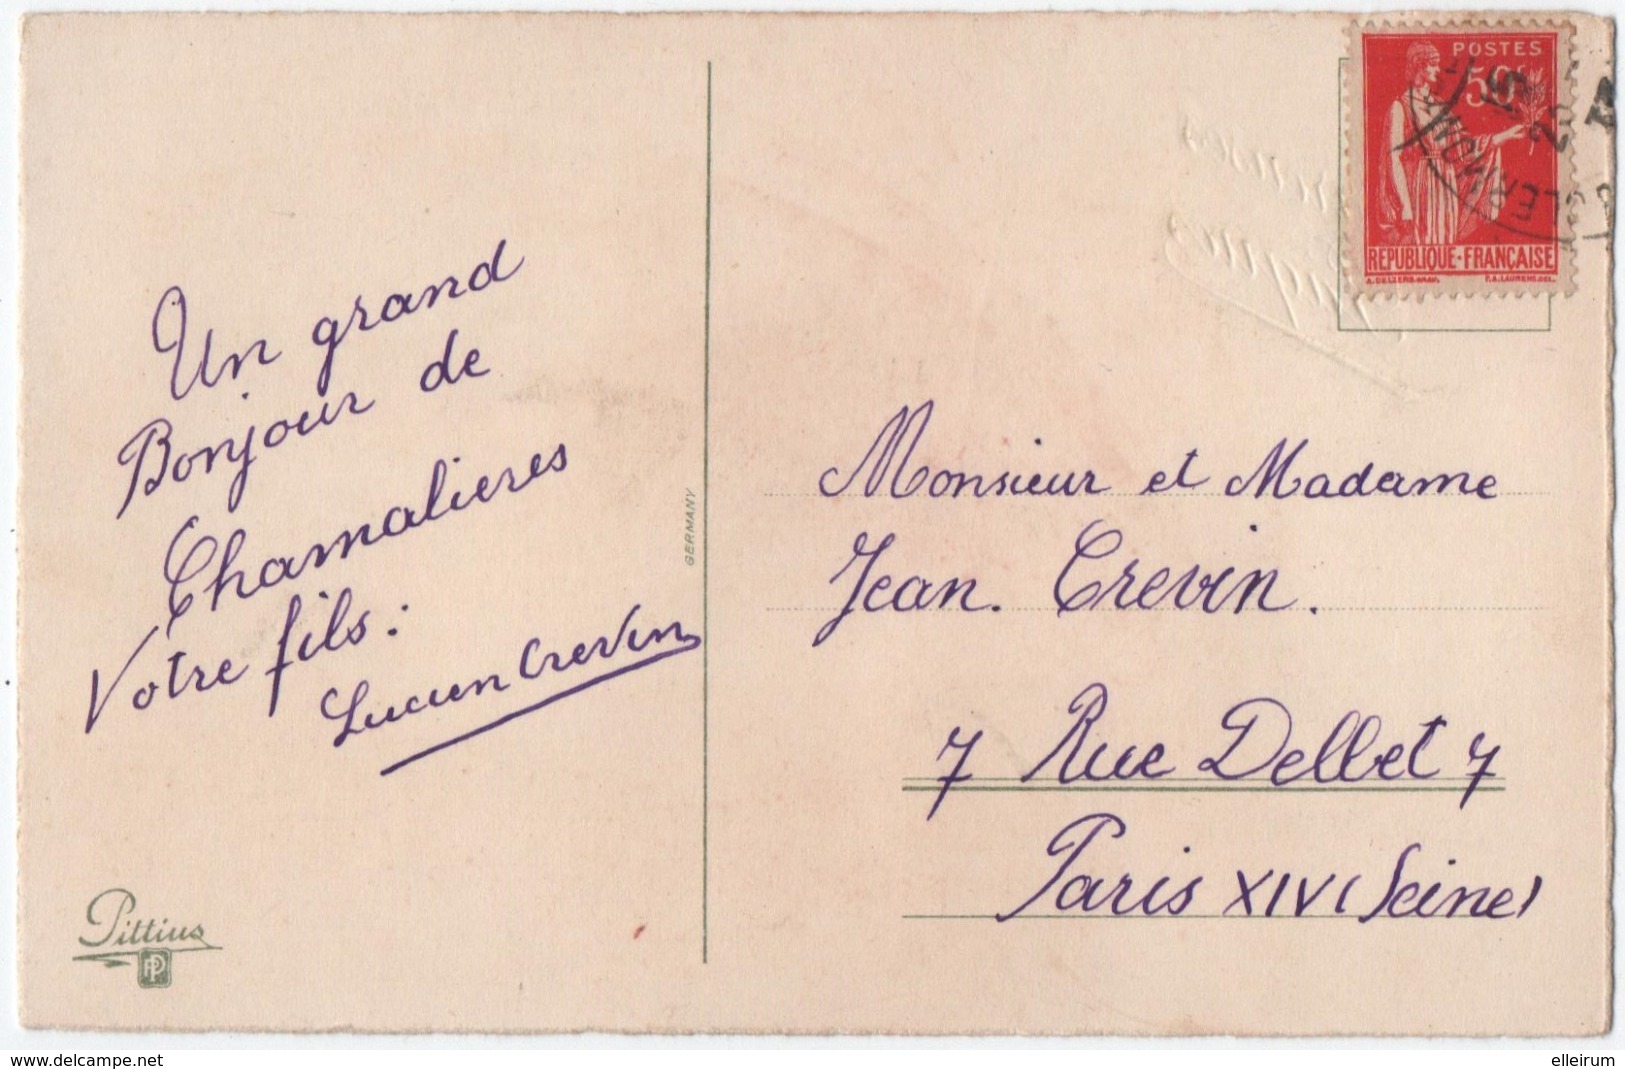 Un grand
Bonjour de
Chamalieres
Votre fils :
Lucien Crevin
GERMANY
Pittius
PP
POSTES
50c
REPUBLIQUE·FRANÇAISE
A. DELZERS. GRAV. P. A. LAURENS. DEL.
CLERMON
Monsieur et Madame
Jean. Crevin.
7 Rue Delbet 7
Paris XIV (Seine)
www.delcampe.net
elleirum